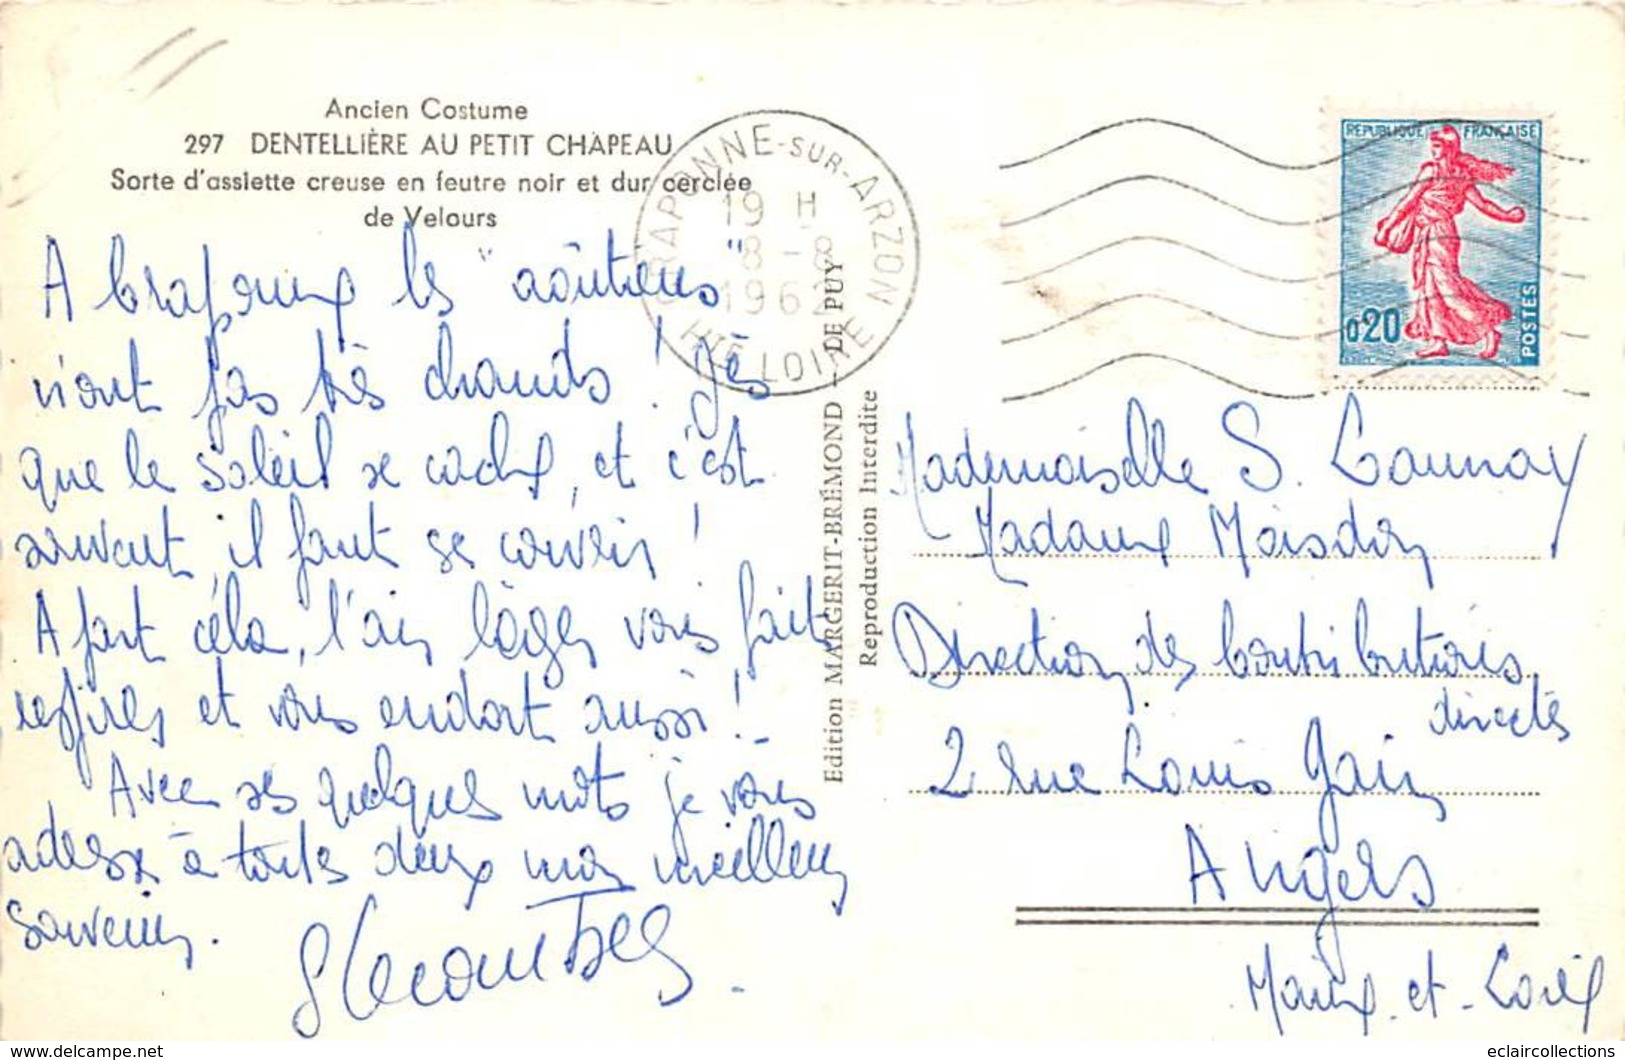 Ancien Costume
297 DENTELLIÈRE AU PETIT CHAPEAU
Sorte d'assiette creuse en feutre noir et dur cerclée
de Velours
CRAPONNE-SUR-ARZON
19 H
8-8
1962
HTE LOIRE
REPUBLIQUE FRANÇAISE
0,20
POSTES
A Craponne les "aoûtiens"
n'ont pas très chauds! Dès
que le soleil se cache, et c'est
souvent, il faut se couvrir!
A part céla, l'air léger vous fait
respirer et vous endort aussi!
Avec ses quelques mots je vous
adresse à toutes deux mon meilleur
souvenir.
Edition MARGERIT-BRÉMOND - LE PUY
Reproduction Interdite
Mademoiselle S. Launay
Madame Moisdon
Direction des Contributions
directes
2 rue Louis Gain
Angers
Maine-et-Loire
eclaircollections